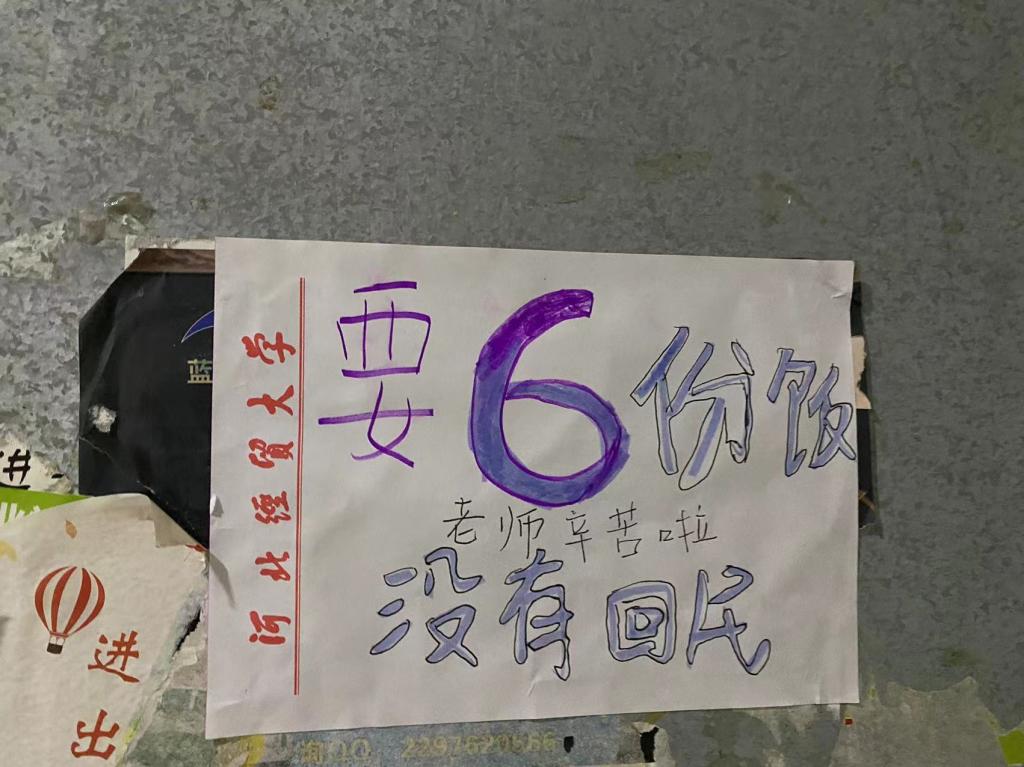 要6份饭
老师辛苦啦
没有回民
河北经贸大学
蓝
进
出
询QQ